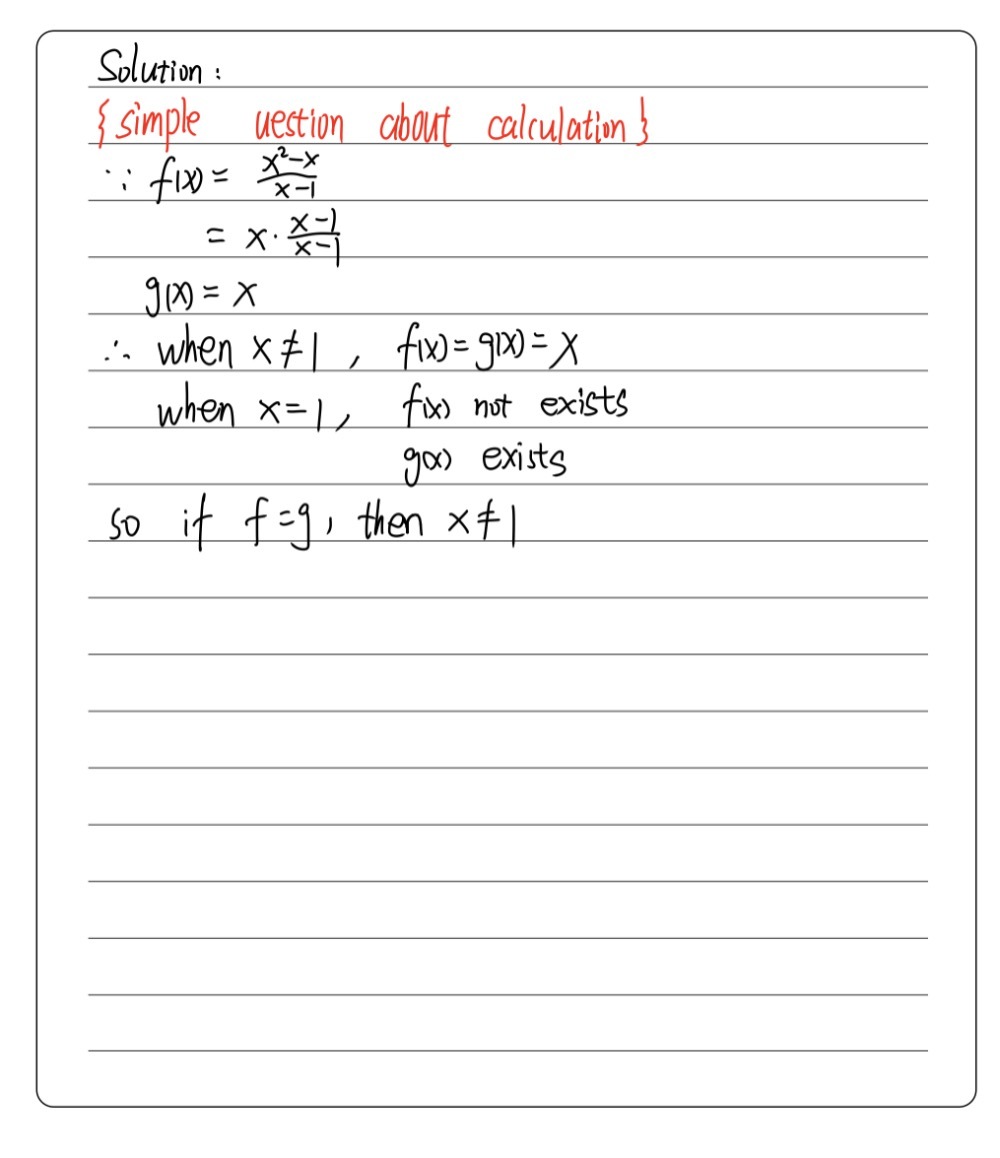 Solution :
{ simple uestion about calculation }
∵ f(x) = \frac{x²-x}{x-1}
= x · \frac{x-1}{x-1}
g(x) = x
∴ when x ≠ 1 , f(x) = g(x) = x
when x = 1 , f(x) not exists
g(x) exists
so if f = g , then x ≠ 1